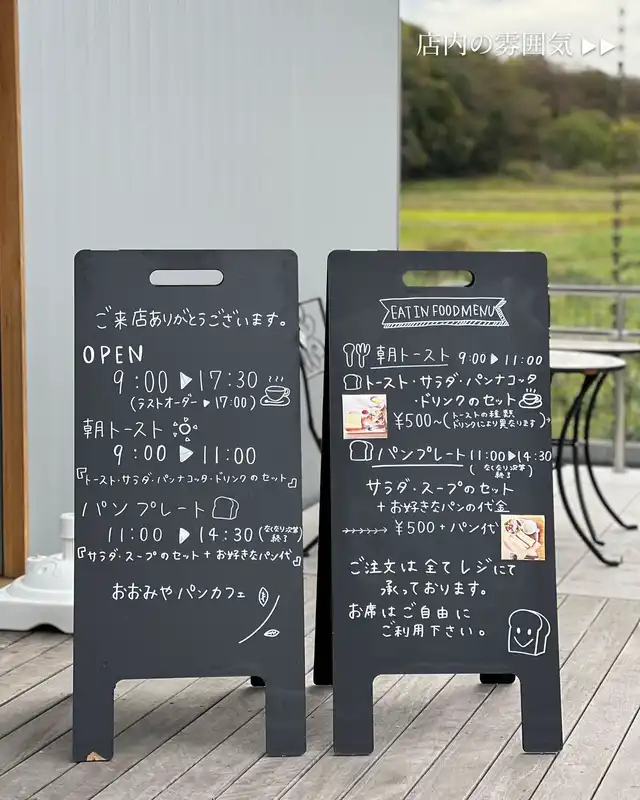 店内の雰囲気 ▶▶
ご来店ありがとうございます。
OPEN
9:00 ▶ 17:30
(ラストオーダー ▶ 17:00)
朝トースト
9:00 ▶ 11:00
『トースト・サラダ・パンナコッタ・ドリンクのセット』
パンプレート
11:00 ▶ 14:30 (なくなり次第
終了)
『サラダ・スープのセット + お好きなパン代』
おおみやパンカフェ
EAT IN FOOD MENU
朝トースト 9:00 ▶ 11:00
トースト・サラダ・パンナコッタ
・ドリンクのセット
¥500~(トーストの種類
ドリンクにより異なります)
パンプレート 11:00 ▶ 14:30
(なくなり次第
終了)
サラダ・スープのセット
+ お好きなパンの代金
¥500 + パン代
ご注文は全てレジにて
承っております。
お席はご自由に
ご利用下さい。